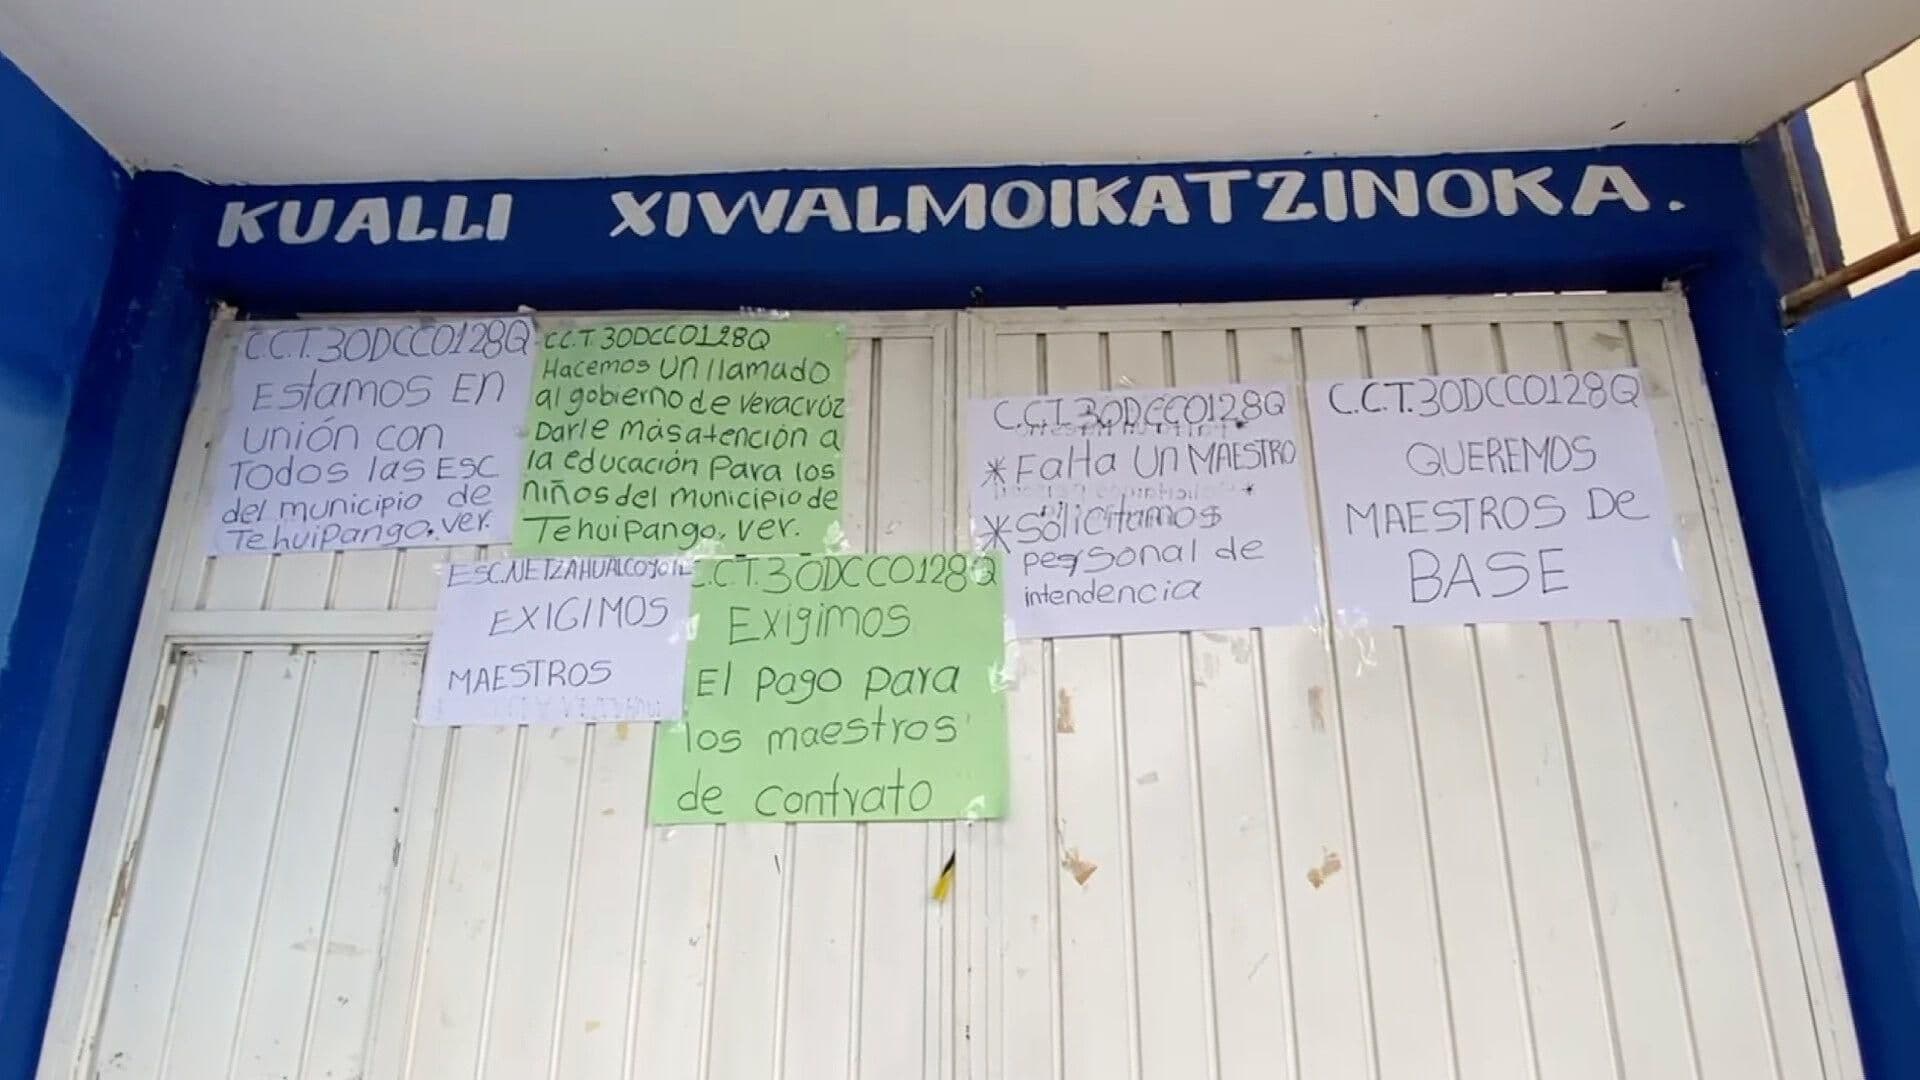 KUALLI XIWALMOIKATZINOKA.
C.C.T.30DCC0128Q
Estamos En
unión con
Todos las ESC
del municipio de
Tehuipango, ver.
C.C.T. 30DCC0128Q
Hacemos un llamado
al gobierno de veracruz
Darle más atención a
la educación Para los
niños del municipio de
Tehuipango, ver.
ESC.NETZAHUALCOYOTL
EXIGIMOS
MAESTROS
C.C.T.30DCC0128Q
Exigimos
El Pago para
los maestros
de contrato
C.C.T.30DCC0128Q
* Falta un MAESTRO
* Solicitamos
personal de
intendencia
C.C.T.30DCC0128Q
QUEREMOS
MAESTROS De
BASE